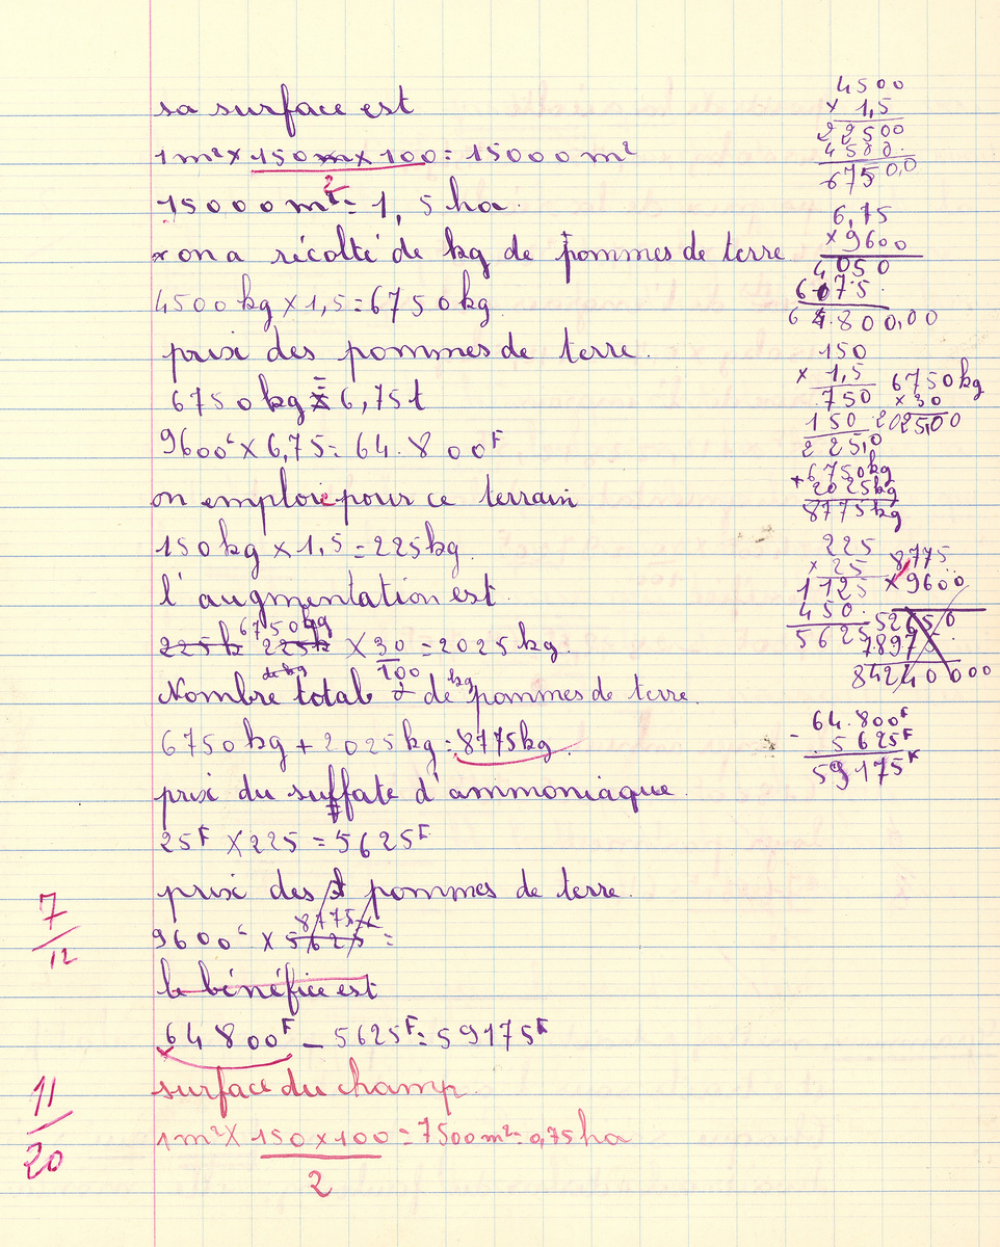 sa surface est
1 m² x 150 m x 100 = 15000 m²
2
15000 m² = 1,5 ha.
on a récolté de kg de pommes de terre
4500 kg x 1,5 = 6750 kg
prix des pommes de terre.
6750 kg = 6,75 t
9600ᶠ x 6,75 = 64.800ᶠ
on emploie pour ce terrain
150 kg x 1,5 = 225 kg.
l'augmentation est
6750 kg
225 k 225 k x 30/100 = 2025 kg.
de kg kg
Nombre total de pommes de terre.
6750 kg + 2025 kg = 8775 kg
prix du suffate d'ammoniaque
25ᶠ x 225 = 5625ᶠ
prix des pommes de terre.
8775
9600ᶠ x 5625 =
le bénéfice est
64 800ᶠ - 5625ᶠ = 59175ᶠ
surface du champ
1 m² x 150 x 100 = 7500 m² = 0,75 ha
2
7
12
11
20
4500
x 1,5
22500
4500.
6750,0
6,75
x 9600
4050
6075.
64.800,00
150
x 1,5
750
150
225,0
6750 kg
x 30
2025,00
+ 6750 kg
2025 kg
8775 kg
225
x 25
1125
450.
5625
8775
x 9600
52650
78975.
84240000
64.800ᶠ
- 5625ᶠ
59175ᶠ